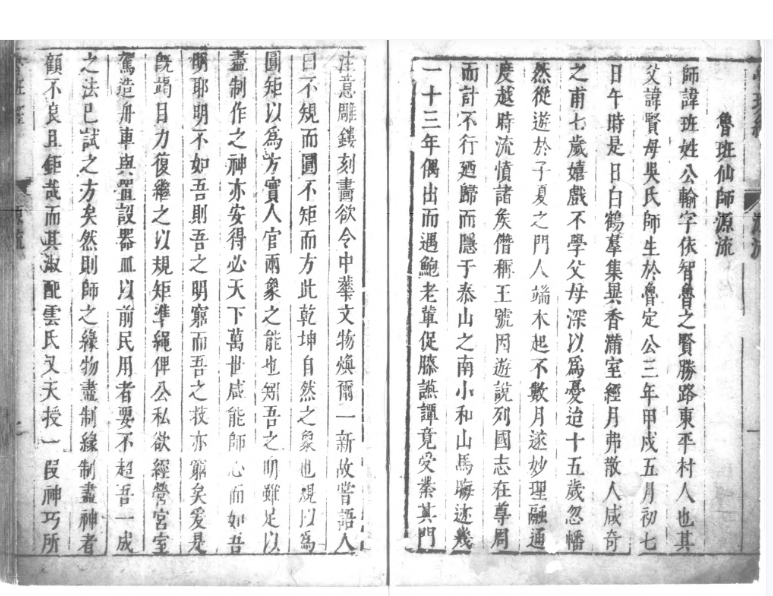 魯班仙師源流
師諱班姓公輸字依智魯之賢勝路東平村人也其
父諱賢母吳氏師生於魯定公三年甲戌五月初七
日午時是日白鶴羣集異香滿室經月弗散人咸奇
之甫七歲嬉戲不學父母深以為憂迨十五歲忽幡
然從遊於子夏之門人端木起不數月遂妙理融通
度越時流憤諸矦僭稱王號因遊說列國志在尊周
而計不行廼歸而隱于泰山之南小和山焉晦迹幾
一十三年偶出而遇鮑老軰促膝讌譚竟受業其門
注意雕鏤刻畫欲令中華文物煥爾一新故嘗語人
曰不規而圓不矩而方此乾坤自然之象也規以為
圓矩以為方實人官兩象之能也矧吾之明雖足以
盡制作之神亦安得必天下萬世咸能師心而如吾
明耶明不如吾則吾之明窮而吾之技亦窮矣爰是
既竭目力復繼之以規矩準繩俾公私欲經營宮室
駕造舟車與置設器皿以前民用者要不超吾一成
之法已試之方矣然則師之緣物盡制緣制盡神者
顧不良且鉅哉而其淑配雲氏又天授一段神巧所